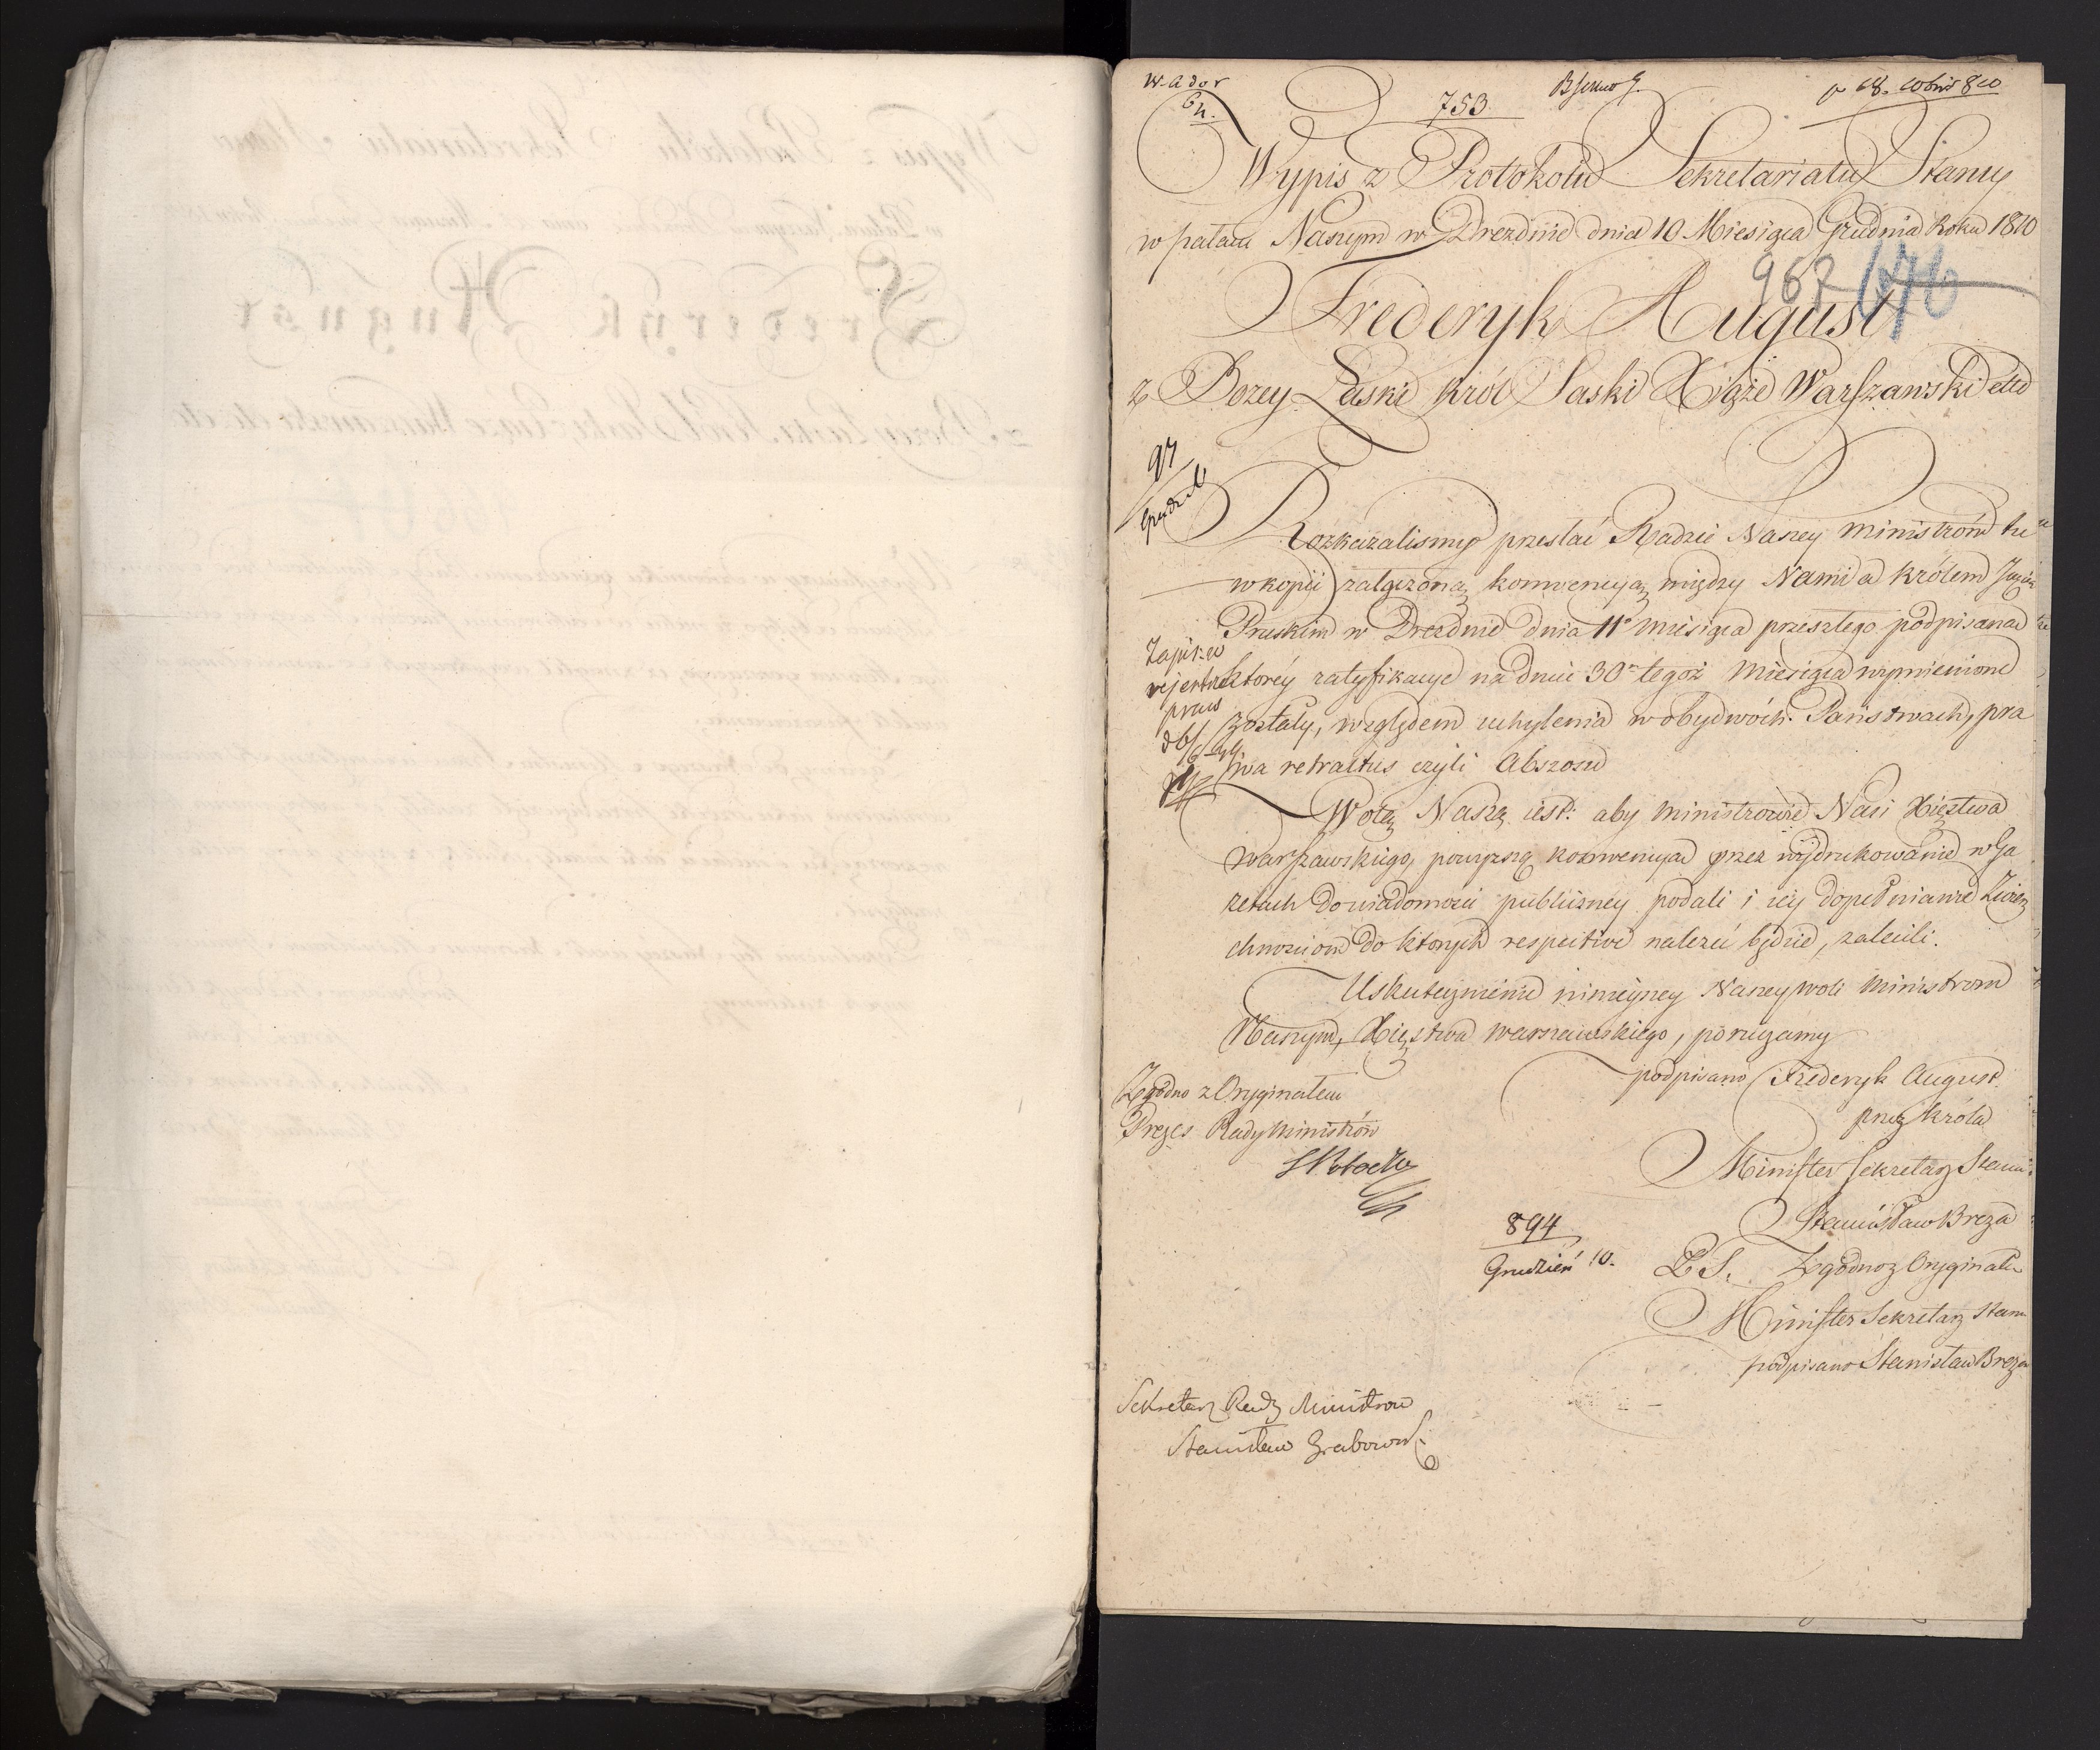 753
Wypis z Protokołu Sekretariatu Stanu
w pałacu Naszym w Dreznie dnia 10 Miesiąca Grudnia Roku 1810
967
Frederyk August
z Bożey Łaski Król Saski Xiąże Warszawski etc
97
Rozkazalismy przesłać Radzie Naszey Ministrów tu
w kopii załączoną konwencyą między Nami a Królem Jmcią
Pruskim w Dreznie dnia 11º miesiąca przeszłego podpisaną
którey ratyfikacye na dniu 30º tegoż Miesiąca wymienione
zostały, względem uchylenia w obydwóch Państwach, pra
wa retractus czyli Abszosu
Wolą Naszą iest: aby Ministrowie Nasi Xięztwa
Warszawskiego, powyższą konwencyą przez wydrukowanie w Ga
zetach do wiadomości publiczney podali i iey dopełnianie Zwierz
chnościom do ktorych respective należeć będzie, zalecili.
Uskutecznienie ninieyszey Naszey woli Ministrom
Naszym, Xięstwa Warszawskiego, poruczamy
podpisano Frederyk August
przez Króla
Minister Sekretarz Stanu
Stanisław Breza
L S. Zgodno z Oryginałem
Minister Sekretarz Stanu
podpisano Stanisław Breza
Zapis. w
rejestrze
praw
Zgodno z Oryginałem
Prezes Rady Ministrów
S Potocki
894
Grudzień 10.
Sekretarz Rady Ministrow
Stanisław Grabowski